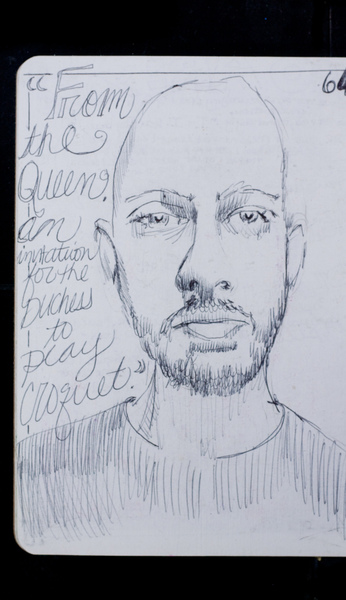 64
"From
the
Queen.
An
invitation
for the
Duchess
to
play
croquet."